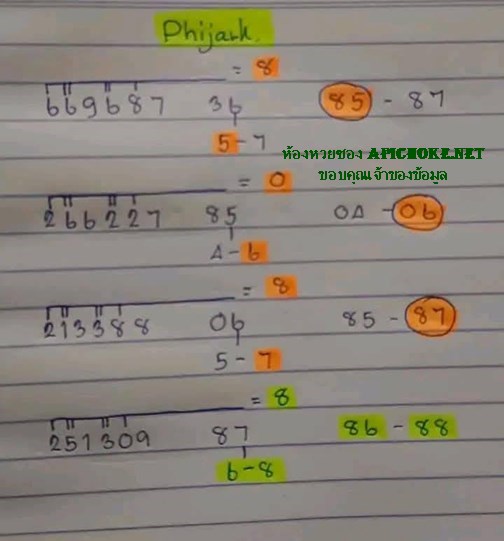 Phijark.
= 8
669687 36 85 - 87
5-7
ห้องหวยซอง APICHOKE.NET
ขอบคุณเจ้าของข้อมูล
= 0
266227 85 04 - 06
4-6
= 8
213388 06 85 - 87
5-7
= 8
251309 87 86 - 88
6-8